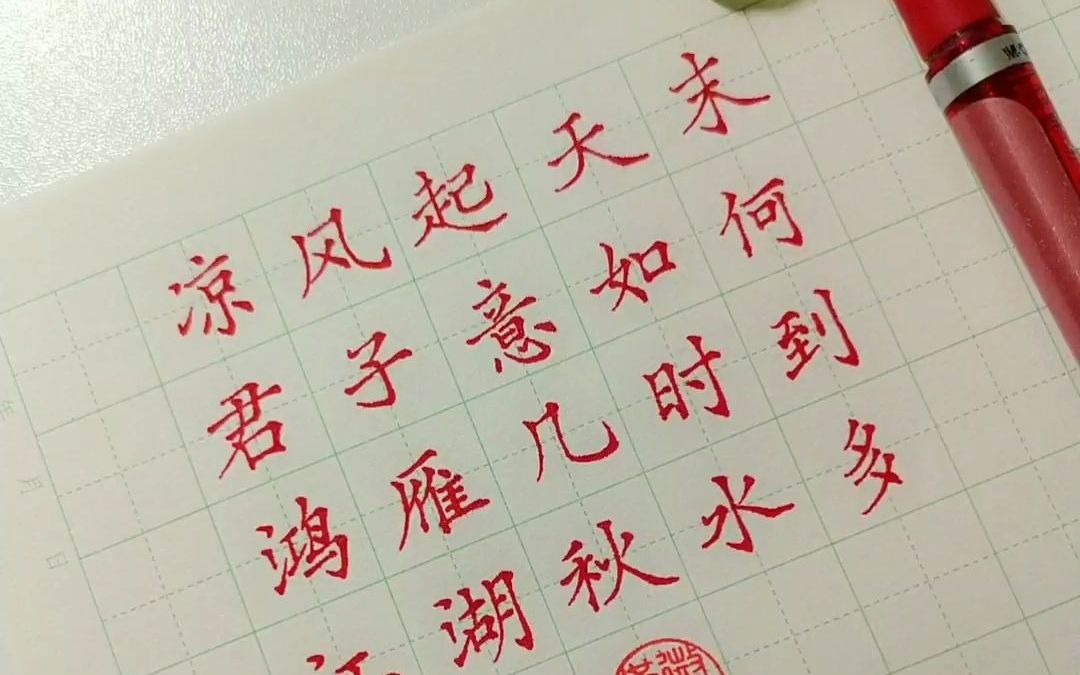 凉风起天末
君子意如何
鸿雁几时到
湖秋水多
年月日